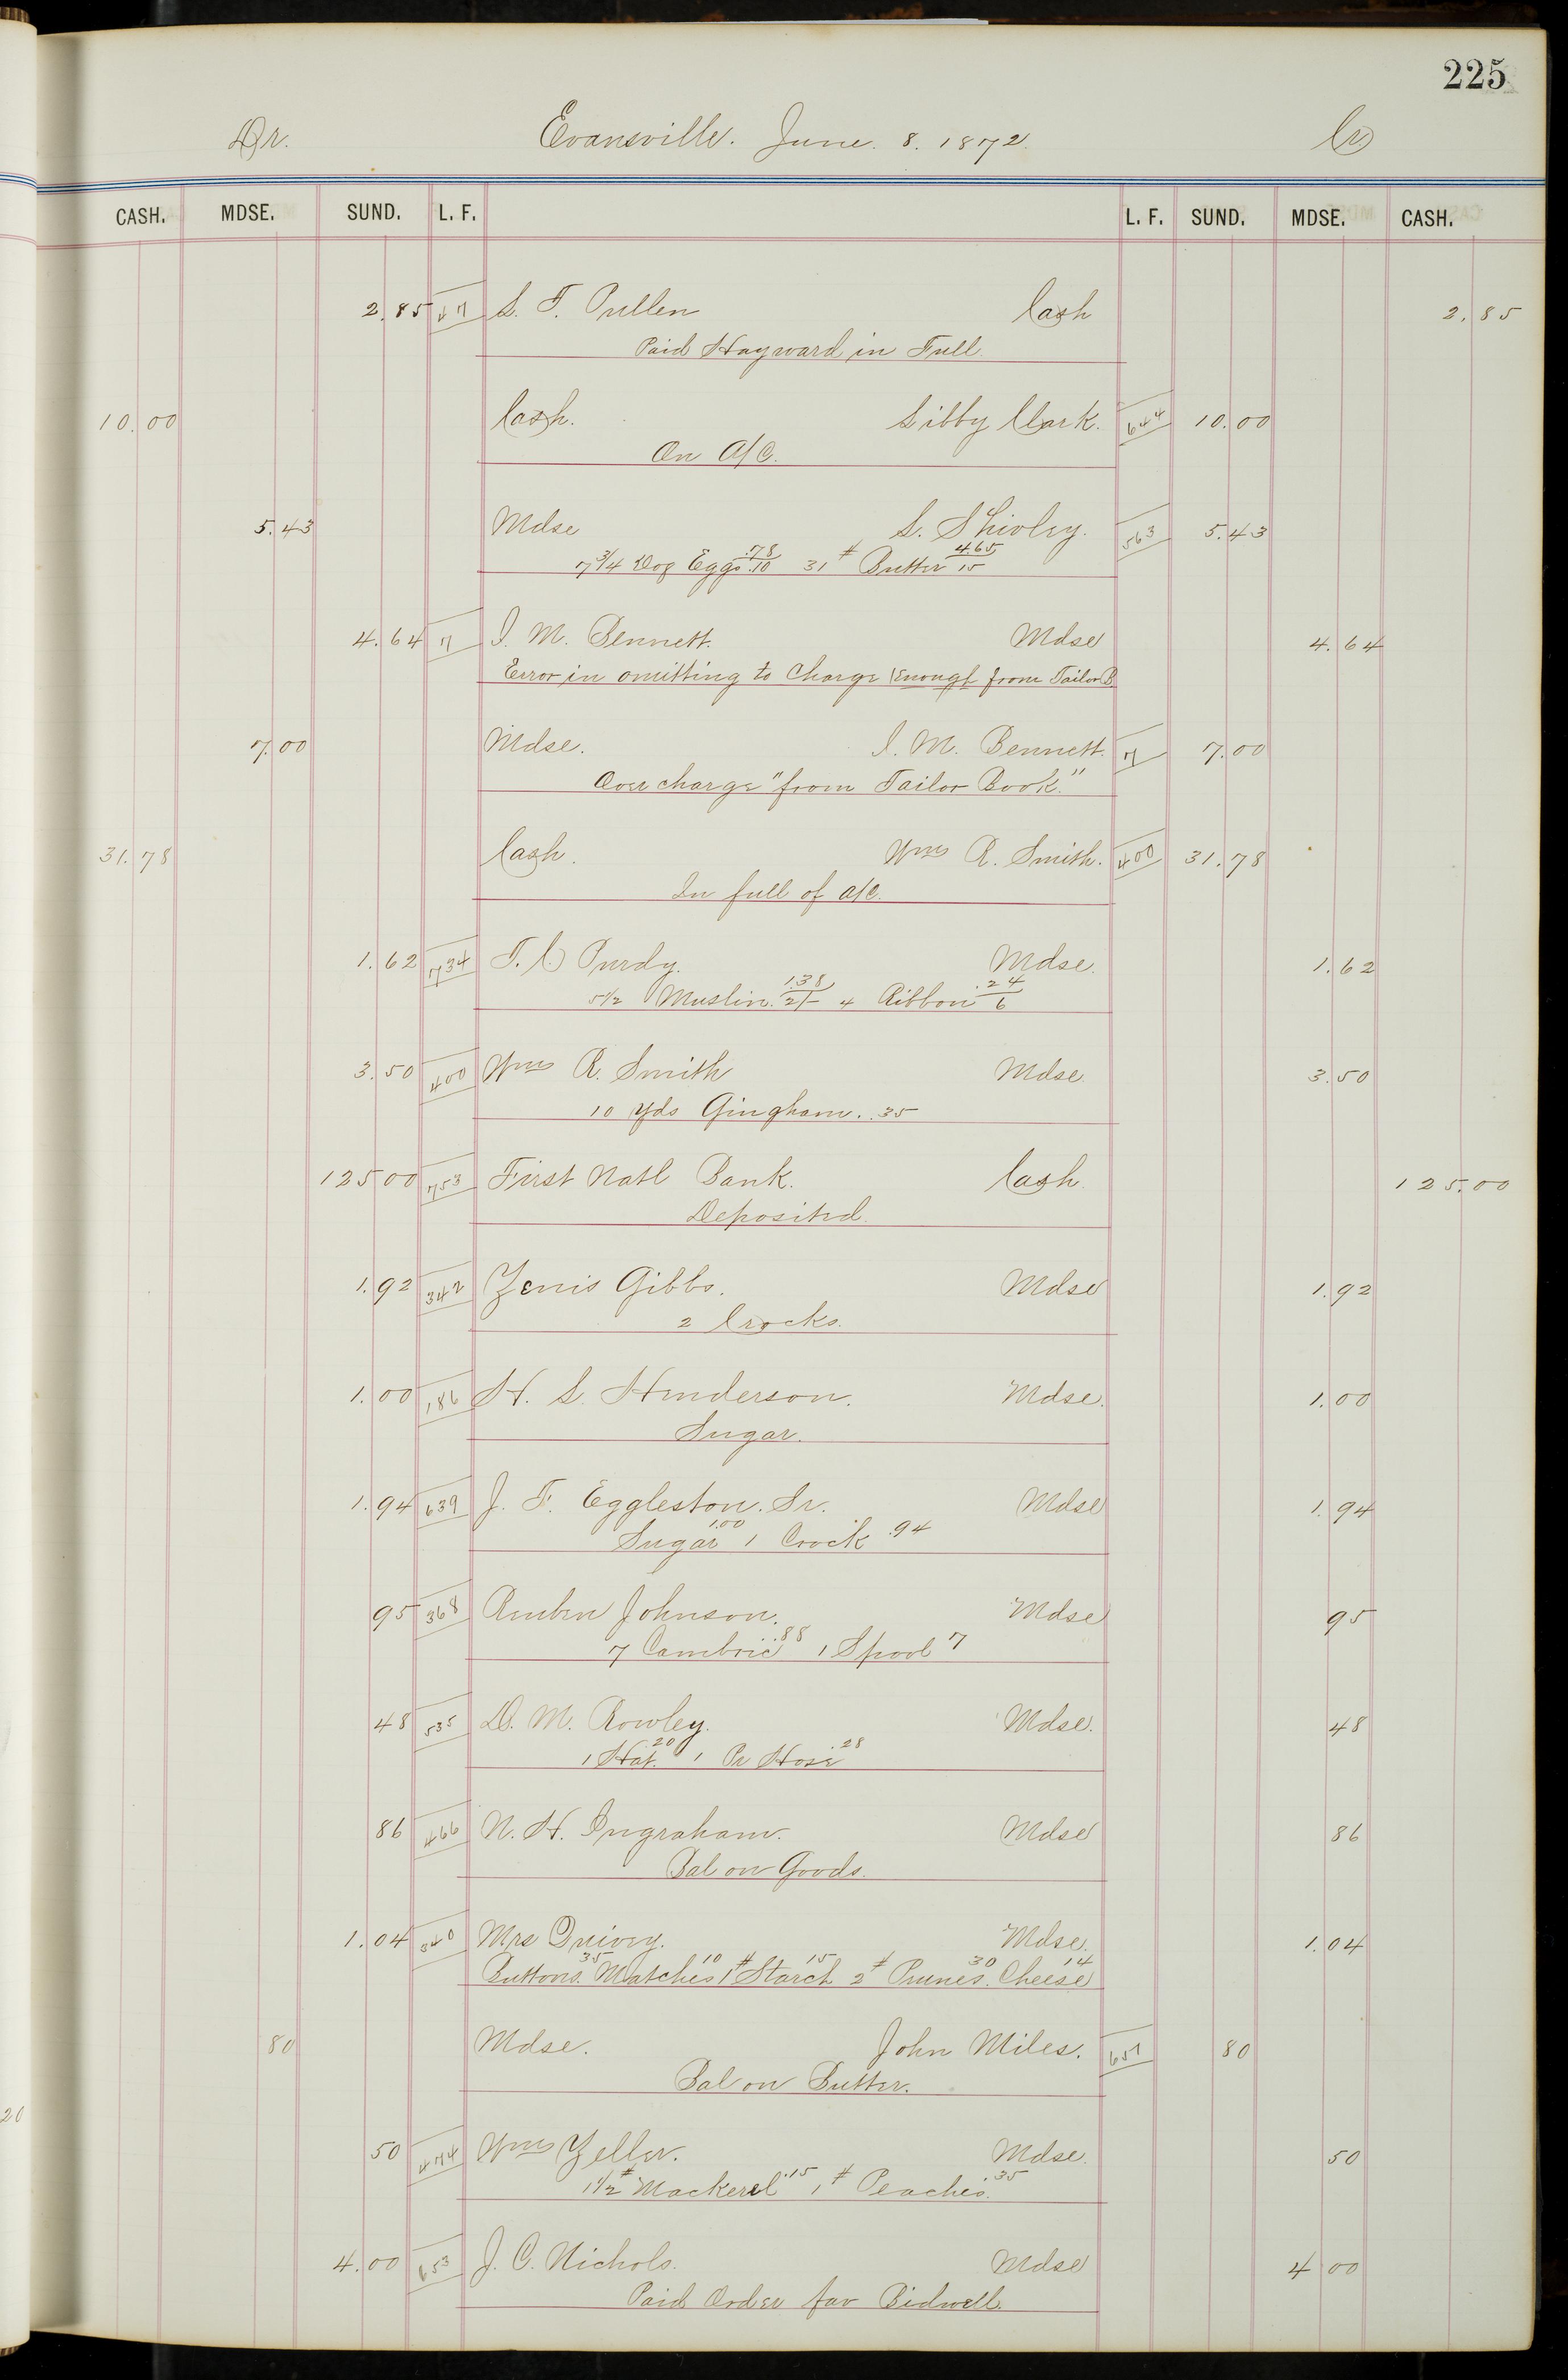 225
Dr. Evansville. June. 8. 1872. Cr
CASH. MDSE. SUND. L. F. L. F. SUND. MDSE. CASH.
2.85 47 S. T. Pullen Cash 2.85
Paid Hayward in Full.
10.00 Cash. Libby Clark. 644 10.00
On A/C.
5.43 Mdse S. Shivley. 563 5.43
7 3/4 Doz Eggs .78 .10 31 # Butter 4.65 15
4.64 7 I. M. Bennett. Mdse 4.64
Error in omitting to Charge Enough from Tailor B.
7.00 Mdse. I. M. Bennett. 7 7.00
Over charge "from Tailor Book."
31.78 Cash. Wm R. Smith. 400 31.78
In full of A/C.
1.62 734 T. C. Purdy. Mdse. 1.62
5 1/2 Muslin. 1.38 2/- 4 Ribbon .24 6
3.50 400 Wm R. Smith Mdse 3.50
10 Yds Gingham. .35
125 00 753 First Natl Bank. Cash. 125.00
Deposited.
1.92 342 Zenis Gibbs. Mdse 1.92
2 Crocks.
1.00 186 H. S. Henderson. Mdse. 1.00
Sugar.
1.94 639 J. F. Eggleston. Sr. Mdse 1.94
Sugar 1.00 1 Crock .94
95 368 Reuben Johnson. Mdse 95
7 Cambric .88 1 Spool 7
48 535 D. M. Rowley. Mdse. 48
1 Hat. .20 1 Pr Hose .28
86 466 N. H. Ingraham. Mdse 86
Bal on Goods.
1.04 540 Mrs Quivey. Mdse. 1.04
Buttons. 35 Matches 10 1 # Starch 15 2 # Prunes. 30 Cheese 14
80 Mdse. John Miles. 657 80
Bal on Butter.
20
50 474 Wm Zeller. Mdse. 50
1 1/2 # Mackerel .15 1 # Peaches. .35
4.00 653 J. C. Nichols. Mdse 4 00
Paid Order fav Bidwell.